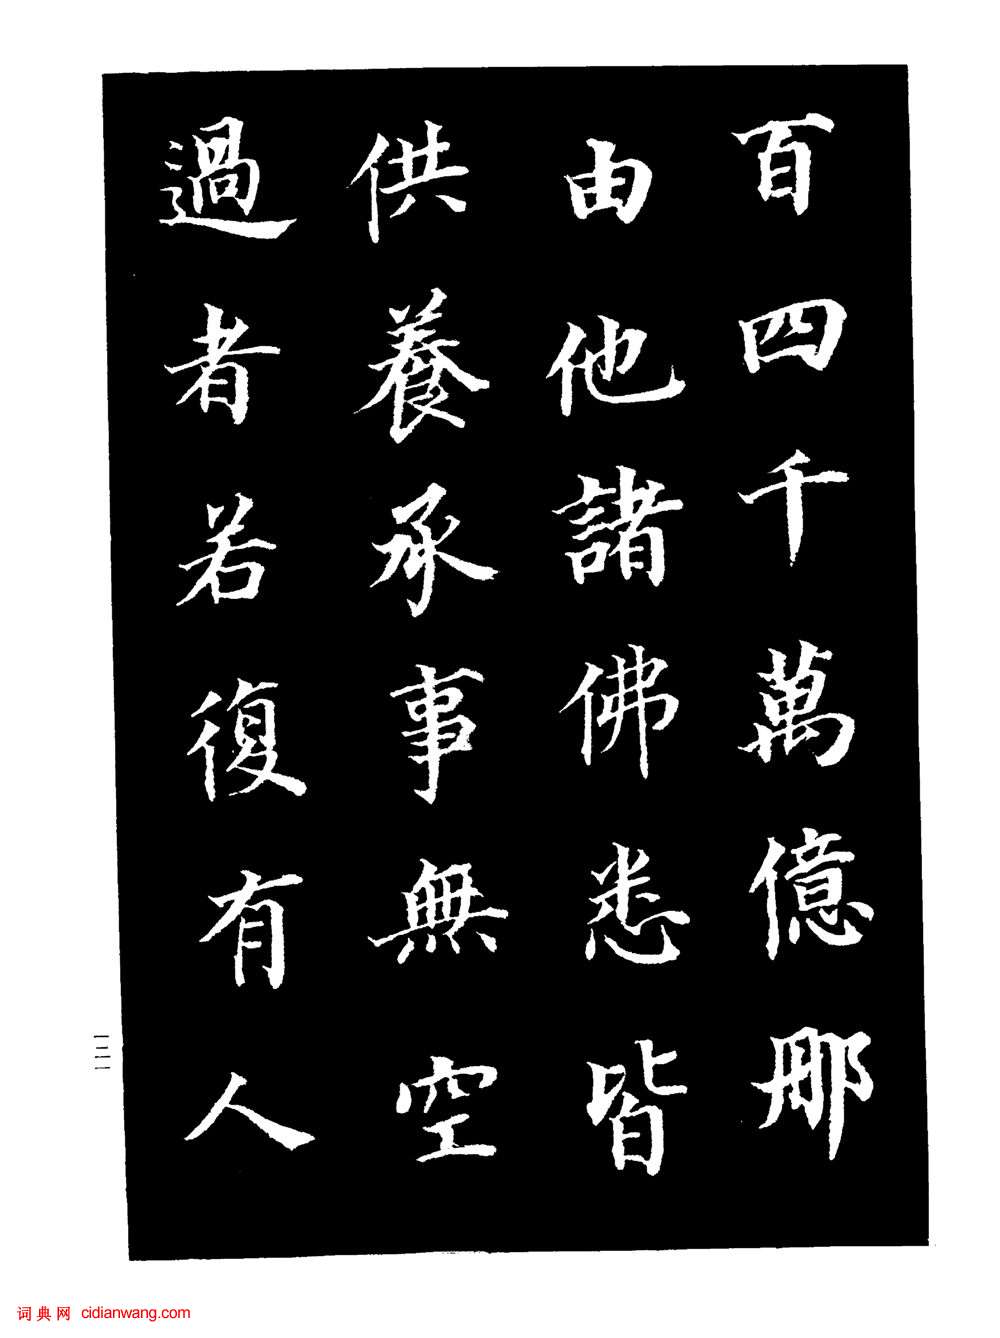 百四千萬億那
由他諸佛悉皆
供養承事無空
過者若復有人
一二一
词典网 cidianwang.com